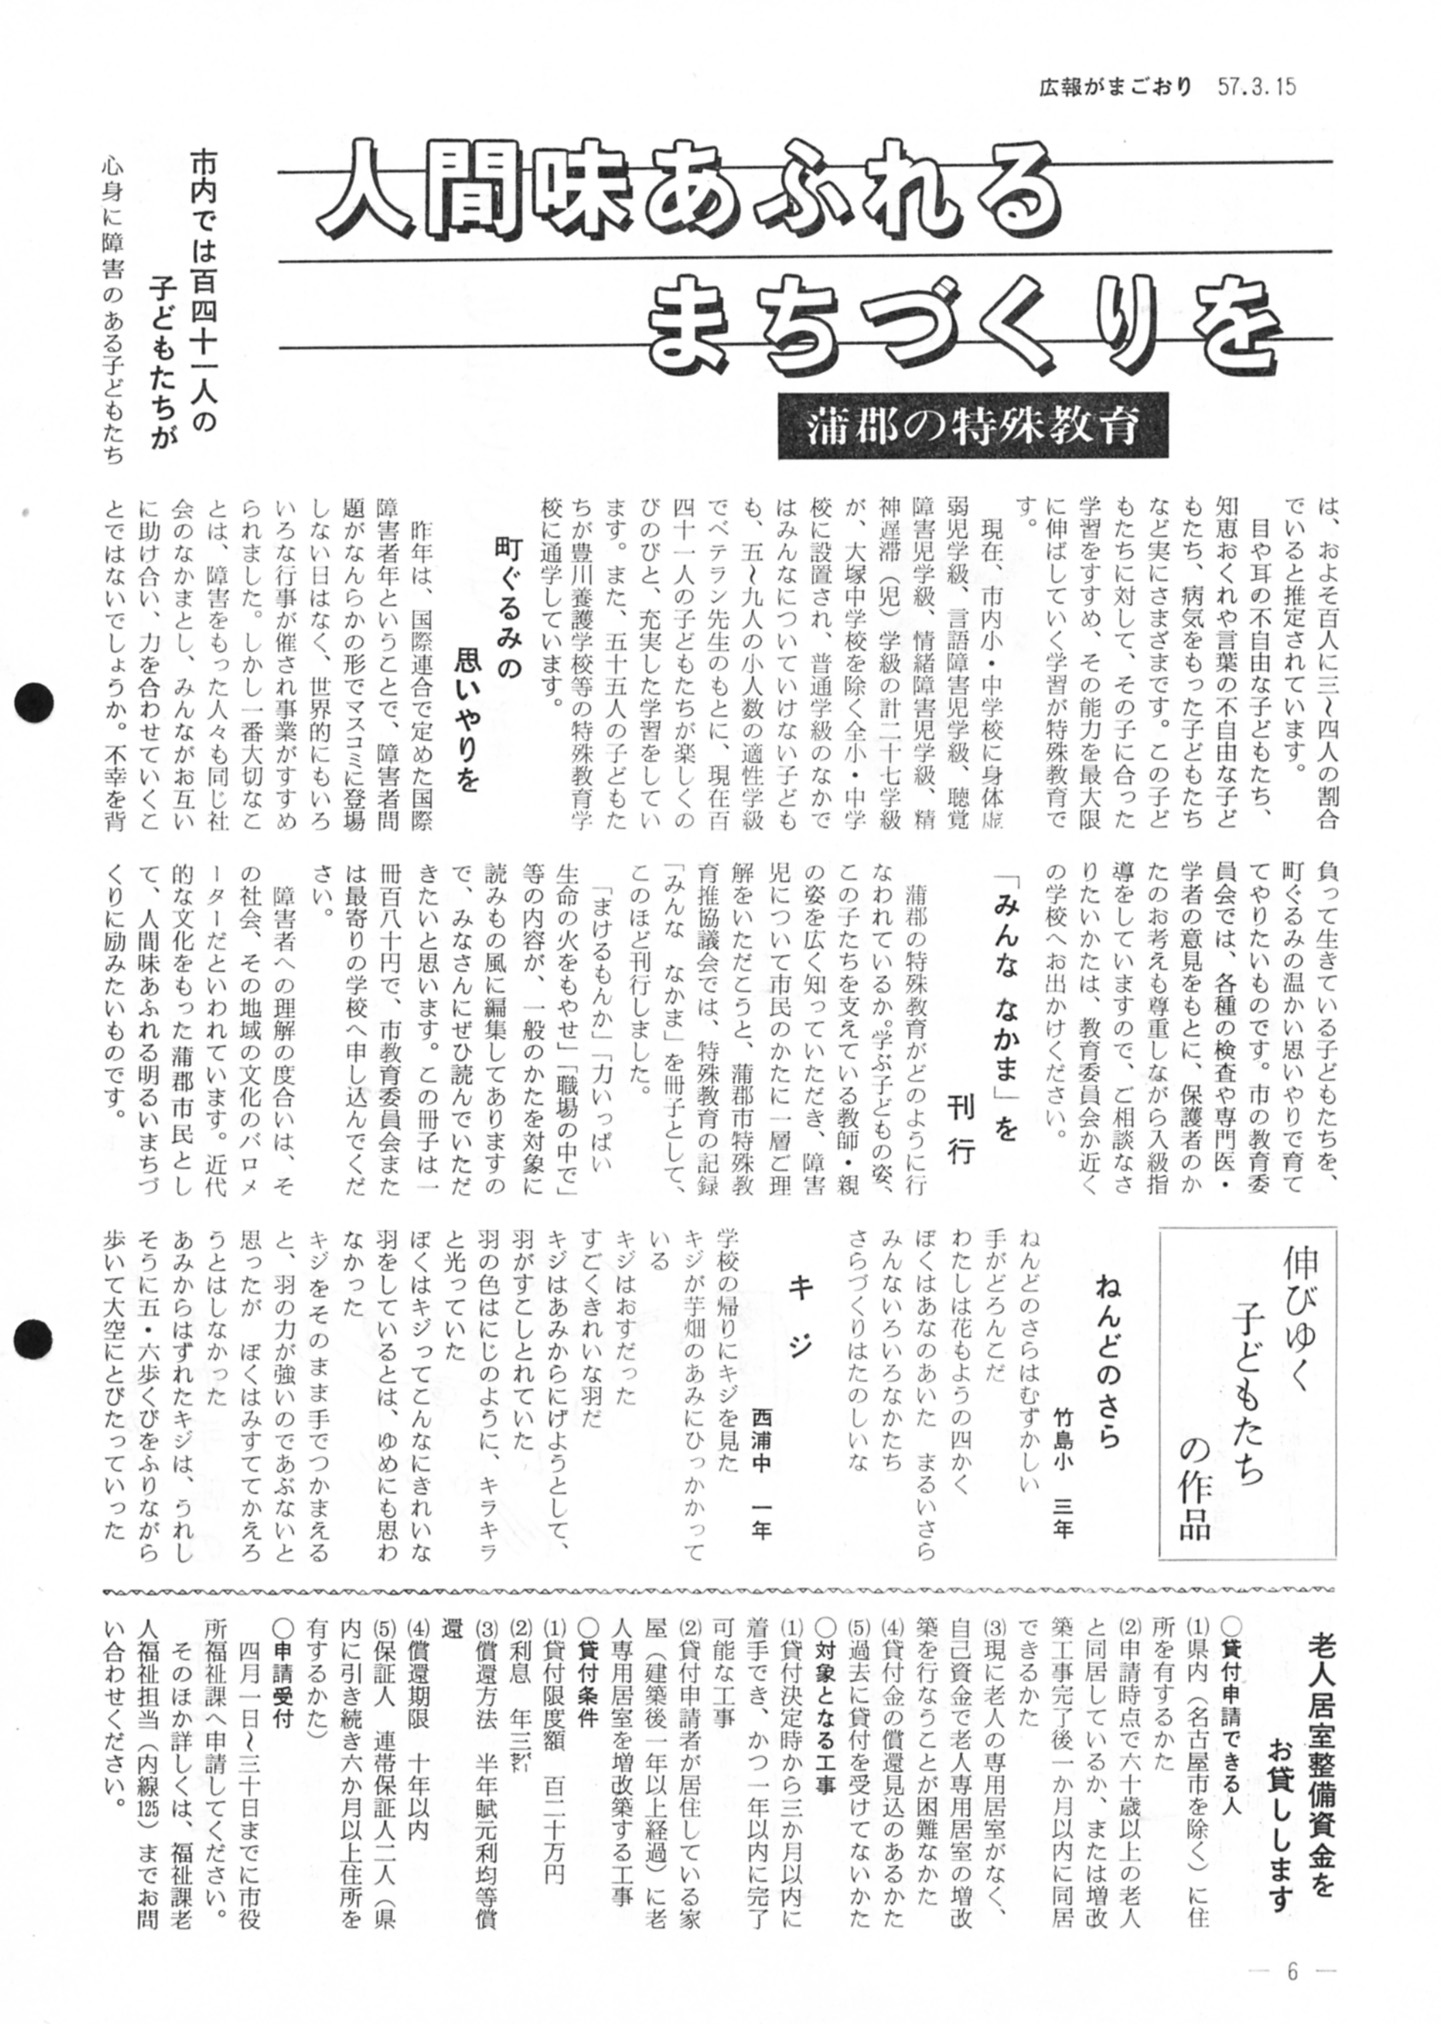 広報がまごおり 57.3.15
人間味あふれる
まちづくりを
蒲郡の特殊教育
市内では百四十一人の
子どもたちが
心身に障害のある子どもたち
は、およそ百人に三〜四人の割合
でいると推定されています。
目や耳の不自由な子どもたち、
知恵おくれや言葉の不自由な子ど
もたち、病気をもった子どもたち
など実にさまざまです。この子ど
もたちに対して、その子に合った
学習をすすめ、その能力を最大限
に伸ばしていく学習が特殊教育で
す。
現在、市内小・中学校に身体虚
弱児学級、言語障害児学級、聴覚
障害児学級、情緒障害児学級、精
神遅滞（児）学級の計二十七学級
が、大塚中学校を除く全小・中学
校に設置され、普通学級のなかで
はみんなについていけない子ども
も、五〜九人の小人数の適性学級
でベテラン先生のもとに、現在百
四十一人の子どもたちが楽しくの
びのびと、充実した学習をしてい
ます。また、五十五人の子どもた
ちが豊川養護学校等の特殊教育学
校に通学しています。
町ぐるみの
思いやりを
昨年は、国際連合で定めた国際
障害者年ということで、障害者問
題がなんらかの形でマスコミに登場
しない日はなく、世界的にもいろ
いろな行事が催され事業がすすめ
られました。しかし一番大切なこ
とは、障害をもった人々も同じ社
会のなかまとし、みんながお互い
に助け合い、力を合わせていくこ
とではないでしょうか。不幸を背
負って生きている子どもたちを、
町ぐるみの温かい思いやりで育て
てやりたいものです。市の教育委
員会では、各種の検査や専門医・
学者の意見をもとに、保護者のか
たのお考えも尊重しながら入級指
導をしていますので、ご相談なさ
りたいかたは、教育委員会か近く
の学校へお出かけください。
「みんな なかま」を
刊行
蒲郡の特殊教育がどのように行
なわれているか。学ぶ子どもの姿、
この子たちを支えている教師・親
の姿を広く知っていただき、障害
児について市民のかたに一層ご理
解をいただこうと、蒲郡市特殊教
育推協議会では、特殊教育の記録
「みんな なかま」を冊子として、
このほど刊行しました。
「まけるもんか」「力いっぱい
生命の火をもやせ」「職場の中で」
等の内容が、一般のかたを対象に
読みもの風に編集してありますの
で、みなさんにぜひ読んでいただ
きたいと思います。この冊子は一
冊百八十円で、市教育委員会また
は最寄りの学校へ申し込んでくだ
さい。
障害者への理解の度合いは、そ
の社会、その地域の文化のバロメ
ーターだといわれています。近代
的な文化をもった蒲郡市民とし
て、人間味あふれる明るいまちづ
くりに励みたいものです。
伸びゆく
子どもたち
の作品
ねんどのさら
竹島小 三年
ねんどのさらはむずかしい
手がどろんこだ
わたしは花もようの四かく
ぼくはあなのあいた まるいさら
みんないろいろなかたち
さらづくりはたのしいな
キジ
西浦中 一年
学校の帰りにキジを見た
キジが芋畑のあみにひっかかって
いる
キジはおすだった
すごくきれいな羽だ
キジはあみからにげようとして、
羽がすこしとれていた
羽の色はにじのように、キラキラ
と光っていた
ぼくはキジってこんなにきれいな
羽をしているとは、ゆめにも思わ
なかった
キジをそのまま手でつかまえる
と、羽の力が強いのであぶないと
思ったが ぼくはみすててかえろ
うとはしなかった
あみからはずれたキジは、うれし
そうに五・六歩くびをふりながら
歩いて大空にとびたっていった
老人居室整備資金を
お貸しします
○貸付申請できる人
⑴県内（名古屋市を除く）に住
所を有するかた
⑵申請時点で六十歳以上の老人
と同居しているか、または増改
築工事完了後一か月以内に同居
できるかた
⑶現に老人の専用居室がなく、
自己資金で老人専用居室の増改
築を行なうことが困難なかた
⑷貸付金の償還見込のあるかた
⑸過去に貸付を受けてないかた
○対象となる工事
⑴貸付決定時から三か月以内に
着手でき、かつ一年以内に完了
可能な工事
⑵貸付申請者が居住している家
屋（建築後一年以上経過）に老
人専用居室を増改築する工事
○貸付条件
⑴貸付限度額 百二十万円
⑵利息 年三㌫
⑶償還方法 半年賦元利均等償
還
⑷償還期限 十年以内
⑸保証人 連帯保証人二人（県
内に引き続き六か月以上住所を
有するかた）
○申請受付
四月一日〜三十日までに市役
所福祉課へ申請してください。
そのほか詳しくは、福祉課老
人福祉担当（内線125）までお問
い合わせください。
— 6 —